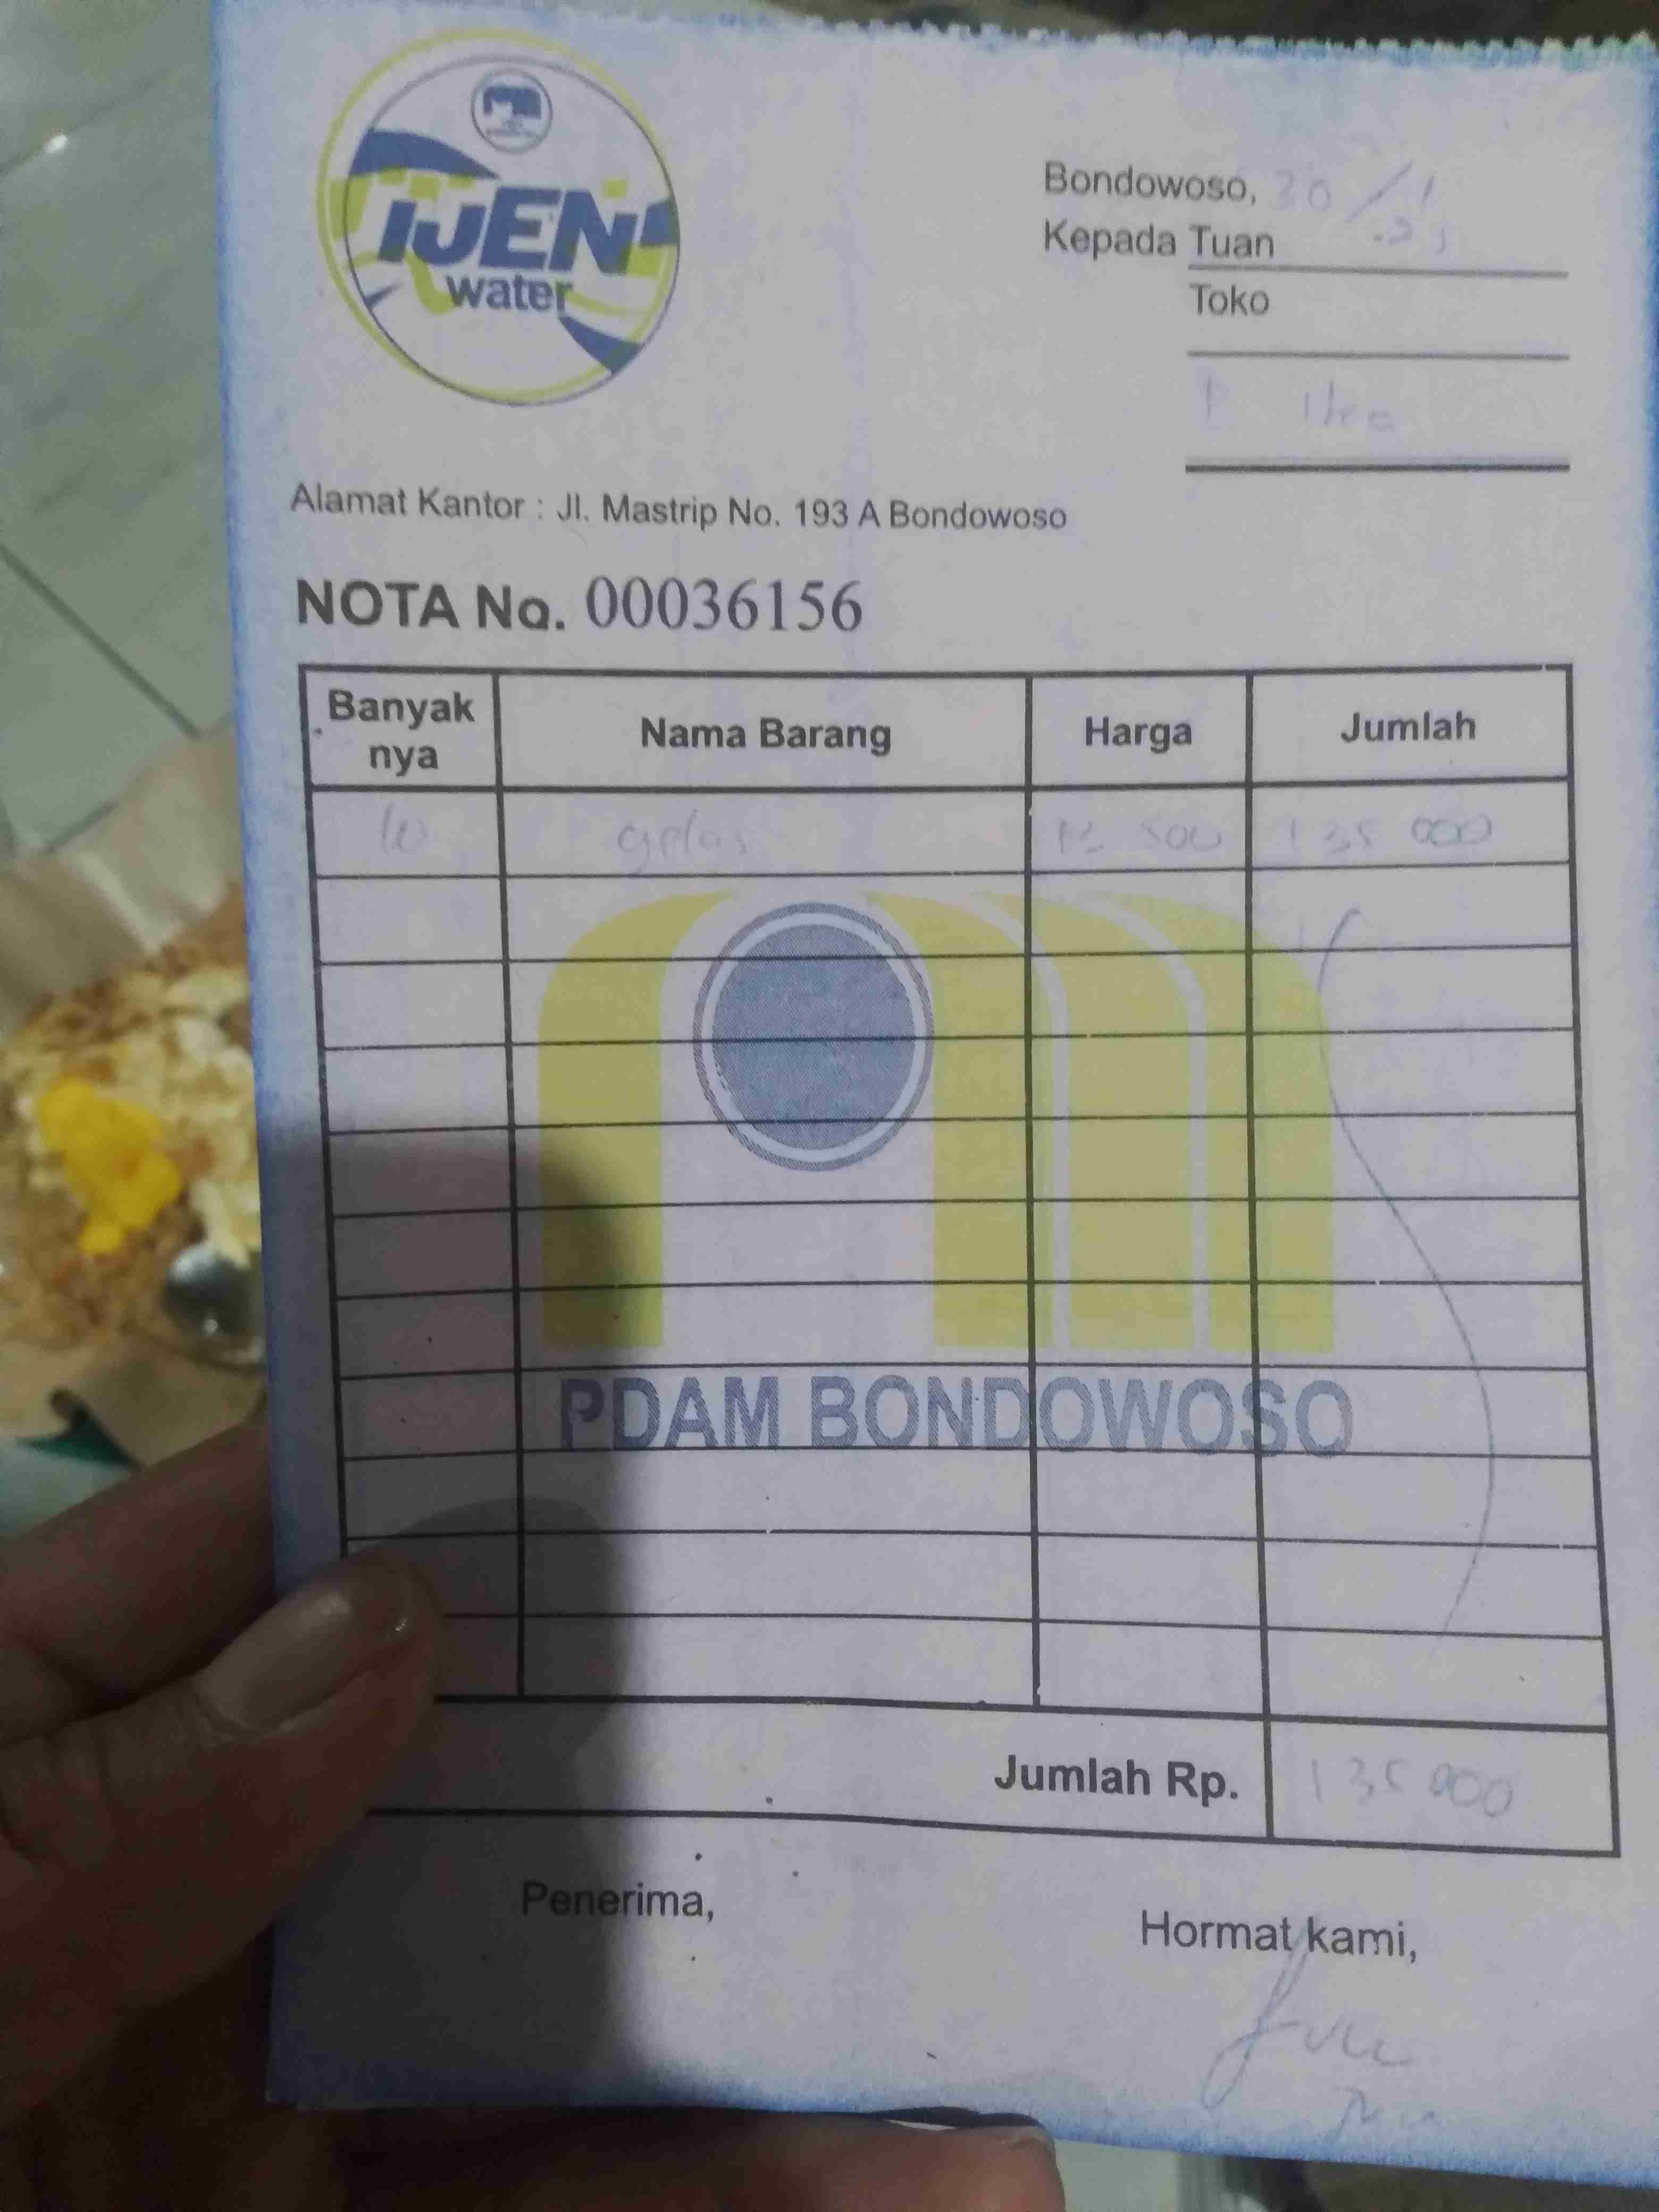 IJEN
water
Bondowoso, 30/1
Kepada Tuan
Toko
P Ike
Alamat Kantor : Jl. Mastrip No. 193 A Bondowoso
NOTA No. 00036156
Banyak nya Nama Barang Harga Jumlah
10 gelas 13 500 135 000
PDAM BONDOWOSO
Jumlah Rp. 135 000
Penerima,
Hormat kami,